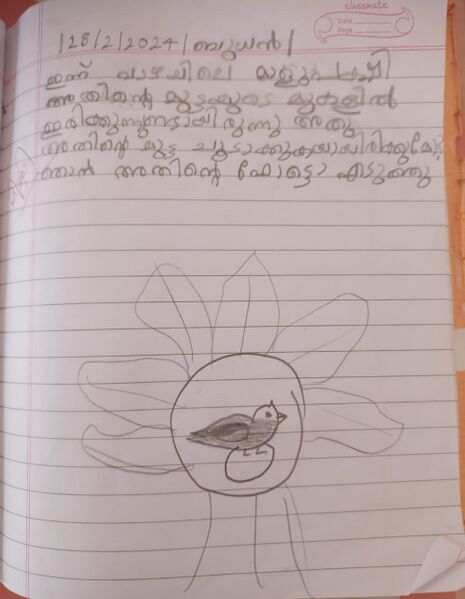 classmate
Date
Page
|28|2|2024|ബുധൻ|
ഇന്ന് വാഴചിലെ
അതിന്റെ മുട്ടയുടെ മുകളിൽ
ഇരിക്കുന്നുണ്ടായിരുന്നു അതു
അതിന്റെ മുട്ട ചൂടാക്കുകയായിരിക്കുമോ
ഞാൻ അതിന്റെ ഫോട്ടൊ എടുത്തു